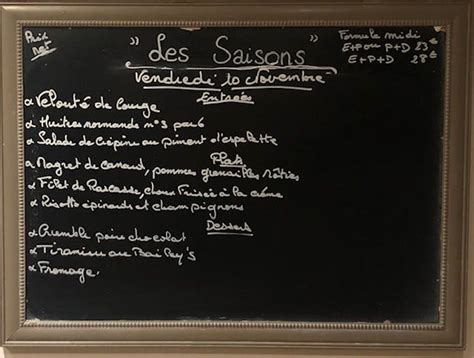 Prix
net
" Les Saisons "
Formule midi
E+P ou P+D 23€
E+P+D 28€
Vendredi 10 Novembre
Entrées
Velouté de Courge
Huitres normandes n°3 par 6
Salade de Crépine au piment d'espelette
Plats
Magret de canard, pommes grenailles rôties
Filet de Rascasse, choux Frisée à la crème
Risotto épinards et champignons
Desserts
Crumble poire chocolat
Tiramisu au Bailey's
Fromage.